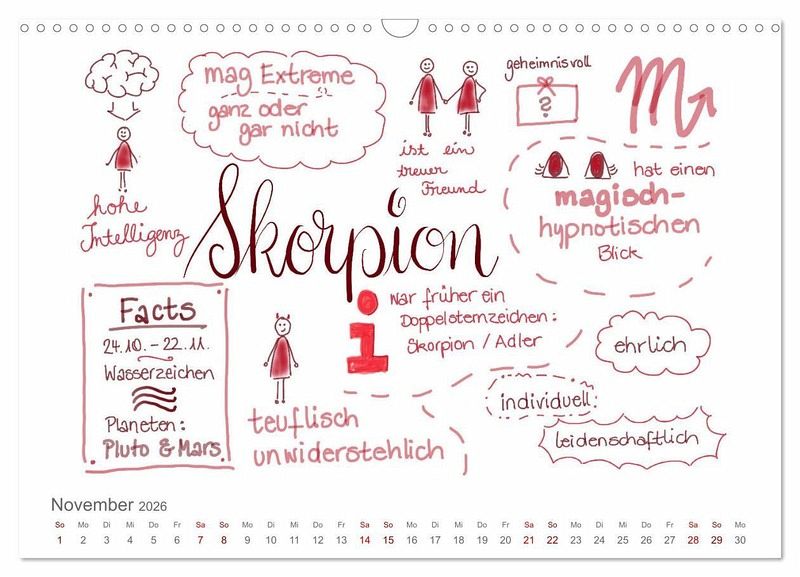 mag Extreme
ganz oder
gar nicht
geheimnisvoll
?
ist ein
treuer
Freund
hohe
Intelligenz
hat einen
magisch-
hypnotischen
Blick
Skorpion
Facts
24.10. – 22.11.
Wasserzeichen
Planeten:
Pluto & Mars
i
war früher ein
Doppelsternzeichen:
Skorpion / Adler
ehrlich
individuell
leidenschaftlich
teuflisch
unwiderstehlich
November 2026
So Mo Di Mi Do Fr Sa So Mo Di Mi Do Fr Sa So Mo Di Mi Do Fr Sa So Mo Di Mi Do Fr Sa So Mo
1 2 3 4 5 6 7 8 9 10 11 12 13 14 15 16 17 18 19 20 21 22 23 24 25 26 27 28 29 30